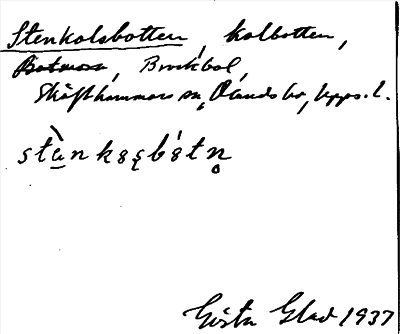 Stenkolsbotten, kolbotten,
Brockbol,
Skäfthammars sn, Ölands hd, Upps. l.
stànkȣʂbȣ́tn̥
Gösta Glad 1937